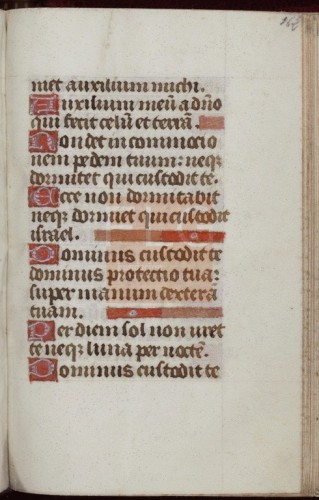 niet auxilium michi.
Auxilium meū a dn̄o
qui fecit celū et terrā.
Non det in commocio
nem pedem tuum: neqȝ
dormitet qui custodit te.
Ecce non dormitabit
neqȝ dormiet qui custodit
israel.
Dominus custodit te
dominus protectio tua:
super manum dextera
tuam.
Per diem sol non uret
te neqȝ luna per noctē.
Dominus custodit te